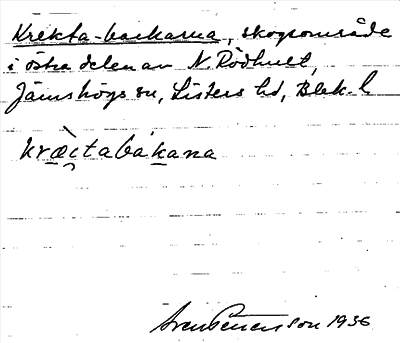 Krekta-backarna, skogsområde
i östra delen av N. Rödhult,
Jämshögs sn, Listers hd, Blek. l.
kræ̀ktabákana
Sven Benson 1936